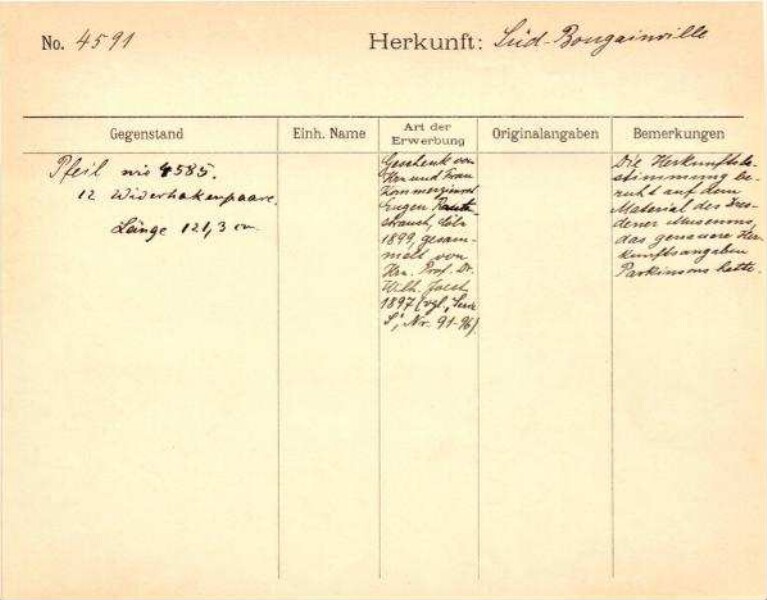 No. 4591
Herkunft: Süd-Bougainville
Gegenstand
Einh. Name
Art der
Erwerbung
Originalangaben
Bemerkungen
Pfeil wie 4585.
12 Widerhakenpaare.
Länge 121,3 cm
Geschenk von
Hrn und Frau
Kommerzienrat
Eugen Rauten-
strauch, Cöln
1899, gesam-
melt von
Hrn. Prof. Dr.
Wilh. Joest
1897 (vgl.
Nr. 91-96).
Die Herkunftsbe-
stimmung be-
ruht auf dem
Material des Dres-
dener Museums,
das genauere Her-
kunftsangaben
Parkinsons hatte.